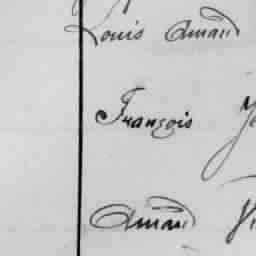 Louis Amand
François
Amand